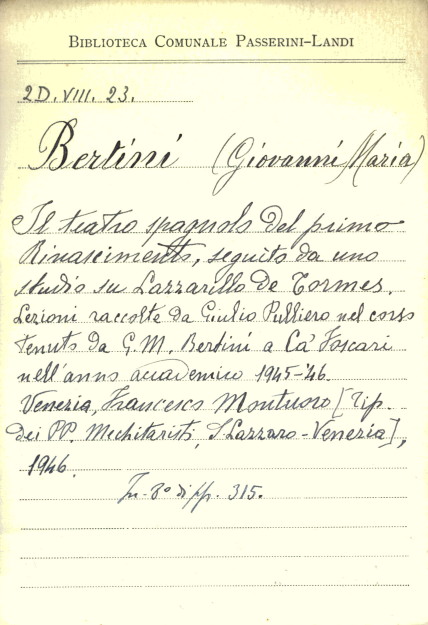 BIBLIOTECA COMUNALE PASSERINI-LANDI
2D. VIII. 23.
Bertini (Giovanni Maria)
Il teatro spagnolo del primo
Rinascimento, seguito da uno
studio su Lazzarillo De Tormes.
Lezioni raccolte da Giulio Pulliero nel corso
tenuto da G. M. Bertini a Ca' Foscari
nell'anno accademico 1945-'46.
Venezia, Francesco Montuoro [Tip.
dei PP. Mechitaristi, S. Lazzaro-Venezia],
1946.
In-8º di pp. 315.